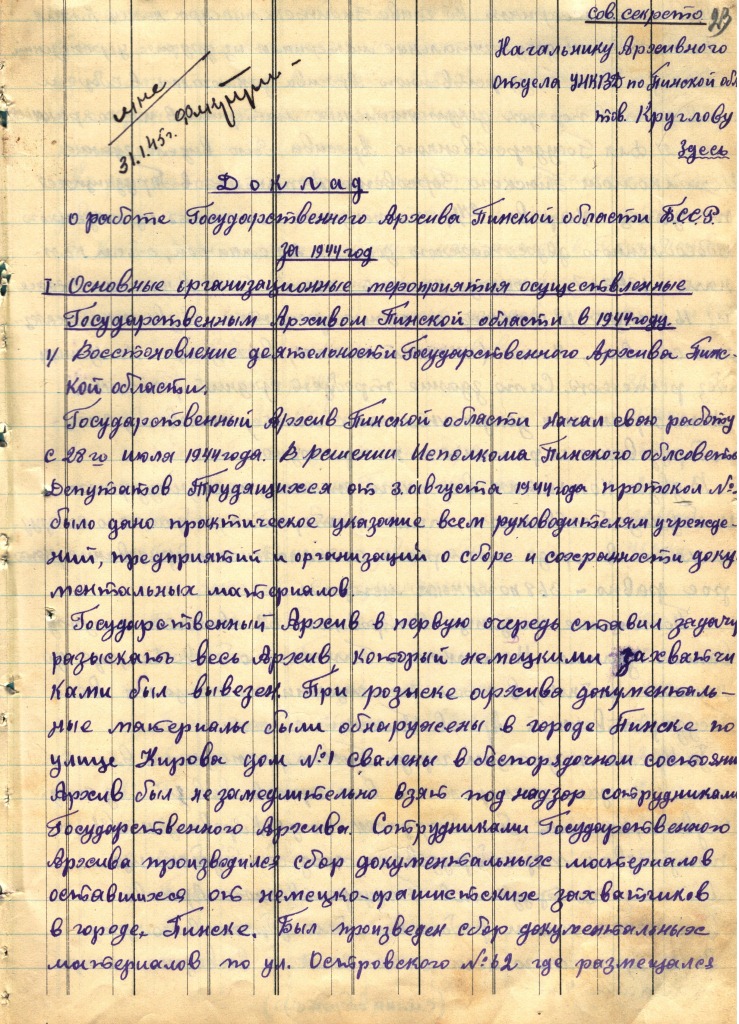 сов. секретно 23
Начальнику Архивного
отдела УНКВД по Пинской обл
тов. Круглову
Здесь
мне
31.1.45г.
Доклад
о работе Государственного Архива Пинской области БССР.
за 1944 год
I Основные организационные мероприятия осуществленные
Государственным Архивом Пинской области в 1944 году.
1/ Восстоновление деятельности Государственного Архива Пинс-
кой области.
Государственный Архив Пинской области начал свою работу
с 28го июля 1944 года. В решении Исполкома Пинского облсовета
Депутатов Трудящихся от 3 августа 1944 года протокол №
было дано практическое указание всем руководителям учрежде-
ний, предприятий и организаций о сборе и сохранности доку
ментальных материалов.
Государственный Архив в первую очередь ставил задачу
разыскать весь Архив, который немецкими захватчи
ками был вывезен. При розыске архива документаль-
ные материалы были обнаружены в городе Пинске по
улице Кирова дом №1 свалены в беспорядочном состояни
Архив был незамедлительно взят под надзор сотрудникам
Государственного Архива. Сотрудниками Государственного
Архива производился сбор документальных материалов
оставшихся от немецко-фашистских захватчиков
в городе, Пинске. Был произведен сбор документальных
материалов по ул. Островского №62 где размещался